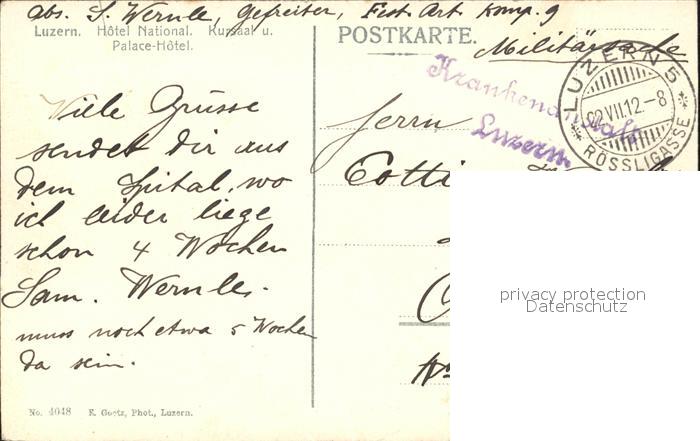 abs. S. Wernle, Gefreiter, Fest. Art. Komp. 9
Luzern. Hôtel National. Kursaal u.
Palace-Hôtel.
POSTKARTE.
Militärsache
Krankenanstalt
Luzern
LUZERN 5
22.VII.12.-8
RÖSSLIGASSE
Viele Grüsse
sendet dir aus
dem Spital, wo
ich leider liege
schon 4 Wochen
Sam. Wernle.
muss noch etwa 5 Wochen
da sein.
Herrn
Gotti
privacy protection
Datenschutz
No. 4048 E. Goetz, Phot., Luzern.